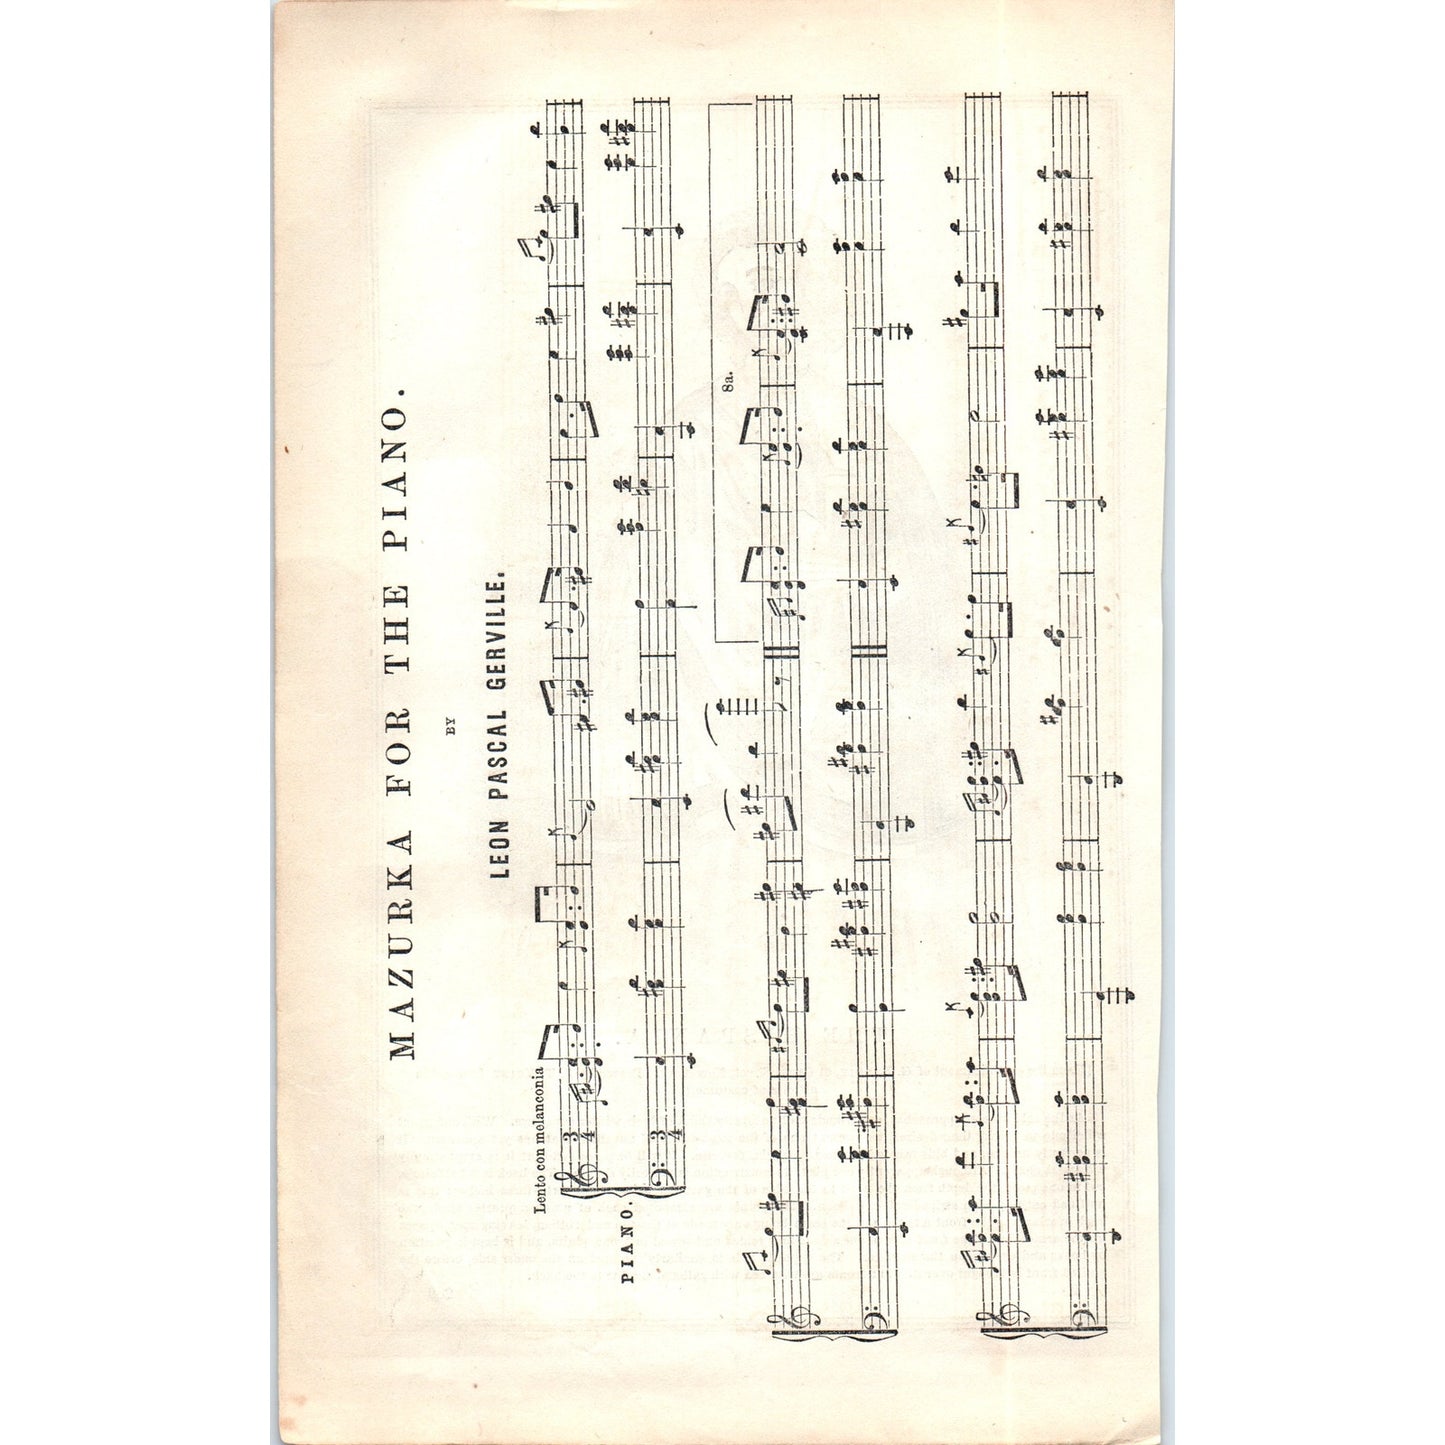 MAZURKA FOR THE PIANO.
BY
LEON PASCAL GERVILLE.
Lento con melanconia
PIANO.
3
4
3
4
8a.